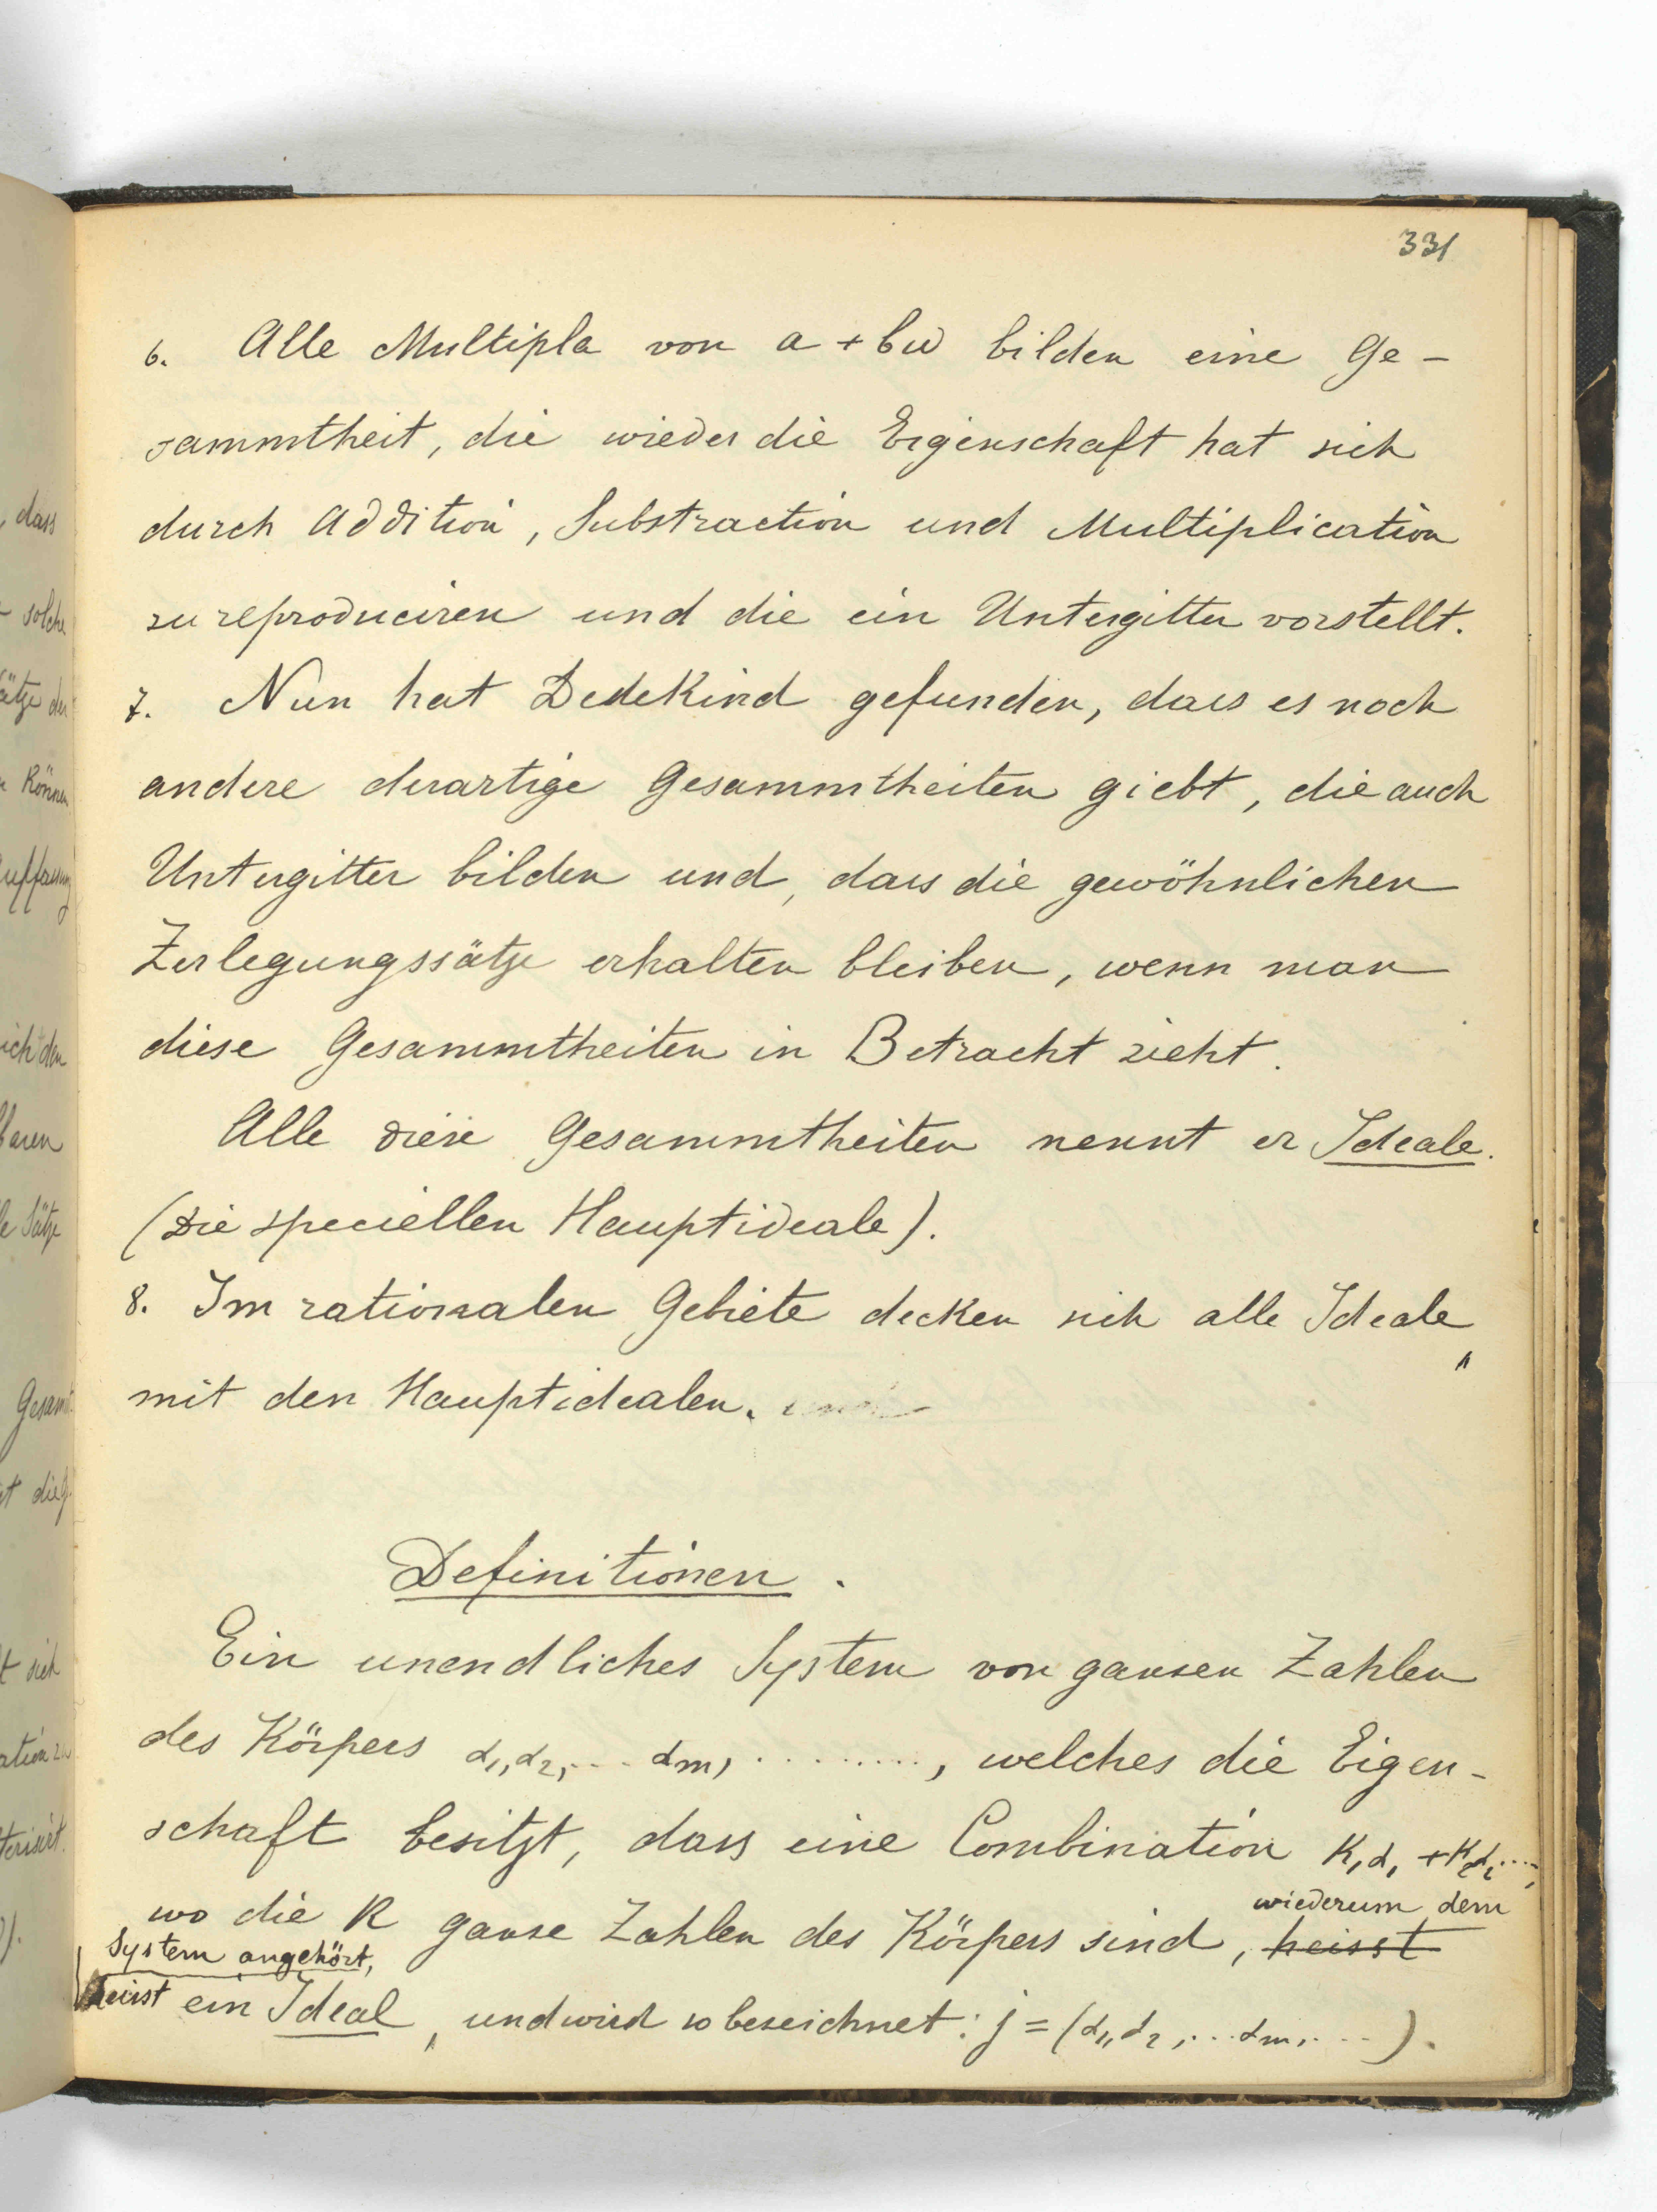 331
6. Alle Multipla von a + bω bilden eine Ge-
sammtheit, die wieder die Eigenschaft hat sich
durch Addition, Substraction und Multiplication
zu reproduciren und die ein Untergitter vorstellt.
7. Nun hat Dedekind gefunden, dass es noch
andere derartige Gesammtheiten giebt, die auch
Untergitter bilden und, dass die gewöhnlichen
Zerlegungssätze erhalten bleiben, wenn man
diese Gesammtheiten in Betracht zieht.
Alle diese Gesammtheiten nennt er Ideale.
(Die speciellen Hauptideale).
8. Im rationalen Gebiete decken sich alle Ideale
mit den Hauptidealen.
Definitionen.
Ein unendliches System von ganzen Zahlen
des Körpers α₁, α₂, ... αm, ........., welches die Eigen-
schaft besitzt, dass eine Combination K₁α₁ + K₂α₂ ....,
wiederum dem
wo die K ganze Zahlen des Körpers sind, heisst
System angehört,
heisst ein Ideal, und wird so bezeichnet: j = (α₁, α₂, ... αm, ...).
, dass
solche
ätze der
Können
uffassung
ich den
baren
le Sätze
Gesamt
t sich
ation zu
terisirt.